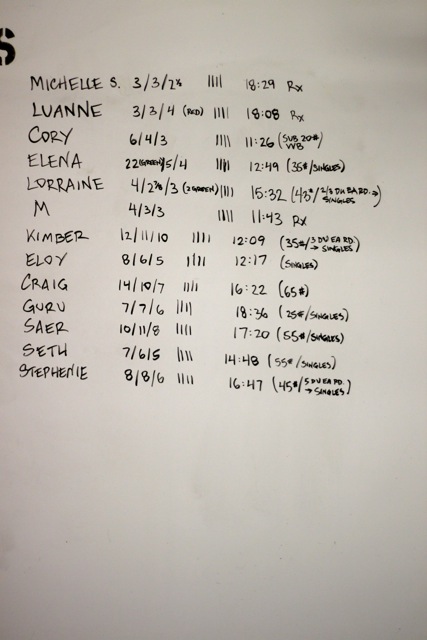 S
MICHELLE S. 3/3/2½ |||| 18:29 Rx
LUANNE 3/3/4 (RED) |||| 18:08 Rx
CORY 6/4/3 |||| 11:26 (SUB 20# WB)
ELENA 22(GREEN)/5/4 |||| 12:49 (35#/SINGLES)
LORRAINE 4/2⅞/3 (2 GREEN) |||| 15:32 (45#/2/3 DU EA RD. → SINGLES)
M 4/3/3 |||| 11:43 Rx
KIMBER 12/11/10 |||| 12:09 (35#/3 DU EA RD. → SINGLES)
ELOY 8/6/5 |||| 12:17 (SINGLES)
CRAIG 14/10/7 |||| 16:22 (65#)
GURU 7/7/6 |||| 18:36 (25#/SINGLES)
SAER 10/11/8 |||| 17:20 (55#/SINGLES)
SETH 7/6/5 |||| 14:48 (55#/SINGLES)
STEPHENIE 8/8/6 |||| 16:47 (45#/5 DU EA RD. → SINGLES)